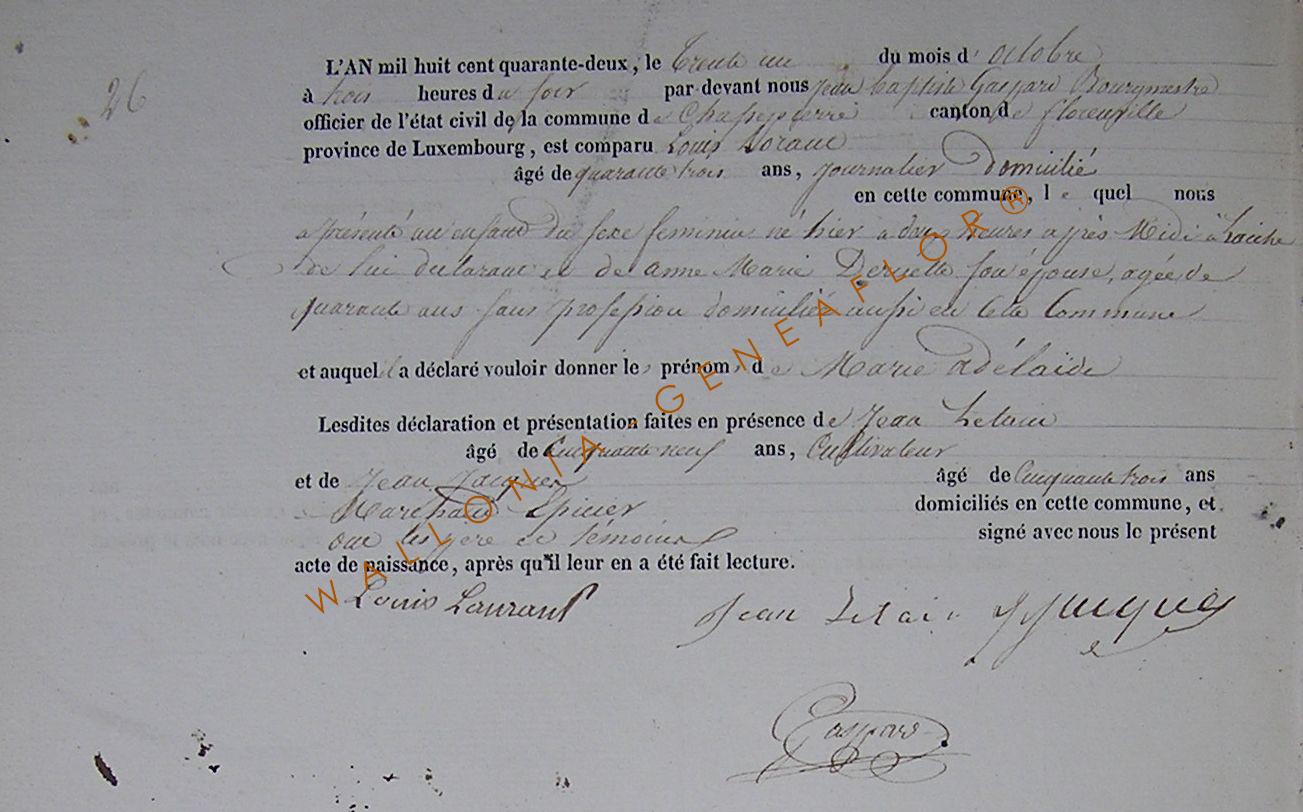 26
L'AN mil huit cent quarante-deux, le Trente un du mois d'octobre
à trois heures du soir par-devant nous jean baptiste Gaspard Bourgmestre
officier de l'état civil de la commune de Chassepierre canton de florenville
province de Luxembourg, est comparu Louis Loraut
âgé de quarante trois ans, journalier domicilié
en cette commune, le quel nous
a présenté un enfant du sexe feminin né hier a deux heures après Midi à Laiche
de lui declarant et de anne Marie Deruette son épouse, agée de
quarante ans sans profession domiciliée aussi en cette Commune
et auquel il a déclaré vouloir donner les prénoms de Marie adélaide
Lesdites déclaration et présentation faites en présence de Jean Letain
âgé de Cinquante neuf ans, Cultivateur
et de Jean Jacques âgé de Cinquante trois ans
Marchand Epicier domiciliés en cette commune, et
ont les père et témoins signé avec nous le présent
acte de naissance, après qu'il leur en a été fait lecture.
Louis Laurant Jean Letain J Jacques
Gaspard
WALLONIA-GENEAFLOR®